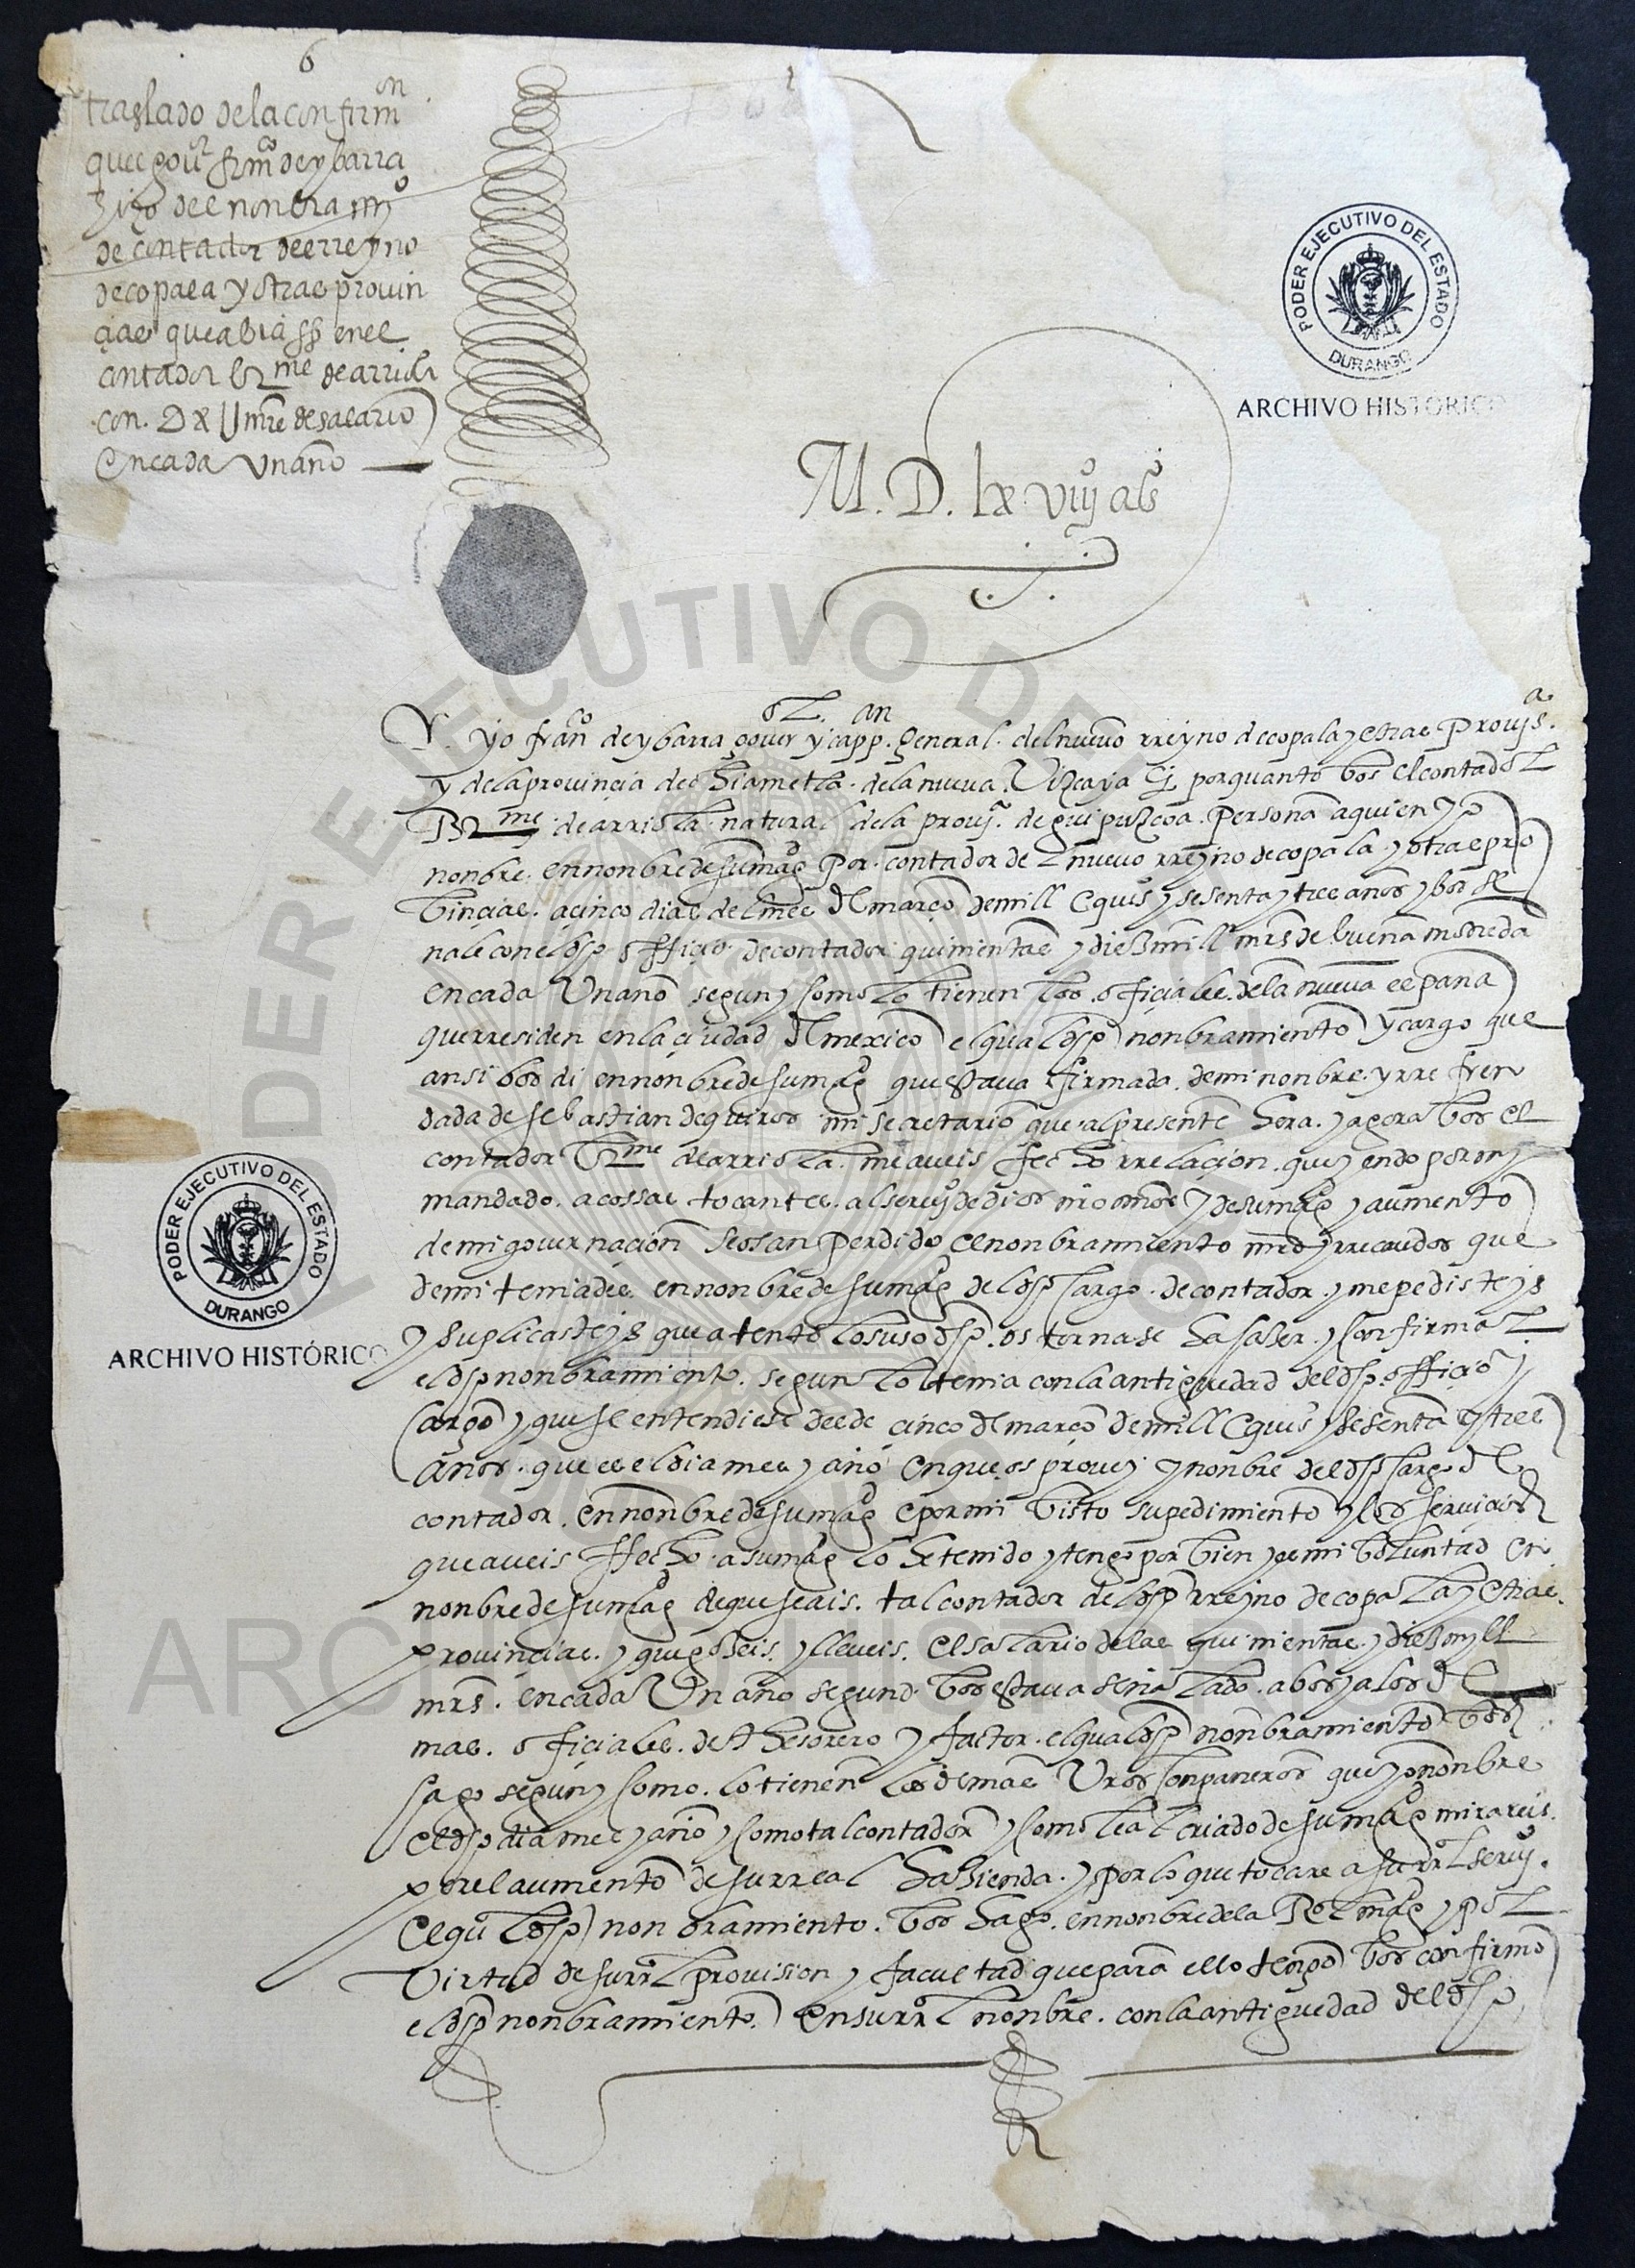 6
traslado dela confirmon
que e gour franco de ybarra
hizo del nonbramyo
de contador del rreyno
de copala y otras provin
cias que abia fho en el
contador brme de arriola
con. D x U mrs de salario
en cada un año
M. D. lx viij as
PODER EJECUTIVO DEL ESTADO
DURANGO
ARCHIVO HISTÓRICO
Yo franco de ybarra goueror y capp.an general. del nuevo rreyno de copala y otras Prouias.
y dela provinçia de chiametla. dela nueva Vizcaya &. por quanto bos el contador
Brme. de arriola natural dela prouja. de guipuzcoa. Persona a quien yo
nonbre. en nonbre de su magd por. contador del nuevo rreyno de copala y otras pro
binçias. a çinco dias del mes de março de mill e quis y sesenta y tres años y bos se
ñale con el dho offiçio de contador quinientas y diez mill mrs de buena moneda
en cada Un año segun y como lo tienen los. ofiçiales. dela nueva españa
que rresiden en la çiudad de mexico el qual dho nonbramiento y cargo que
ansi bos di en nonbre de su magd que estaua firmada. de mi nonbre. y rrefren
dada de sebastian de quiros mi secretario que al presente hera. y agora bos el
contador Brme de arriola. me aueis fecho rrelaçion. que yendo por my
mandado. a cossas tocantes. al seruyo de dios nro señor y de su magd y aumento
de mi gouernaçion se os an perdido el nonbramiento y rrecaudos que
de mi teniades. en nonbre de su magd del dho cargo. de contador. y me pedisteys
y suplicasteys que atento lo suso dho. os tornase ha haser. y confirmar
el dho nonbramiento. segun lo tenia con la antiguedad del dho offiçio y
cargo y que se entendiese desde çinco de março de mill e quis y sesenta y tres
años. que es el dia mes y año en que os prouey y nonbre del dho cargo de
contador. en nonbre de su magd e por mi bisto su pedimiento y los seruiçios
que aueis ffecho a su magd lo he tenido y tengo por bien y de mi boluntad en
nonbre de su magd de que seais. tal contador del dho rreyno de copala y otras
prouinçias. y que goseis. y lleueis. el salario delas quinientas. y diez myll
mrs. en cada Un año segund. bos estaua señalado. a bos y a los de
mas. ofiçiales. de thesorero y factor. el qual dho nonbramiento bos
hago segun y como. lo tienen los demas Uros conpañeros que yo nonbre
el dho dia mes y año y como tal contador y como leal criado de su magd mirareis.
por el aumento de su rreal hazienda. y por lo que tocare a su rrl seruyo.
el qual dho nonbramiento. bos hago. en nonbre dela Rl magd y por
Virtud de su rrl prouision y facultad que para ello tengo bos confirmo
el dho nonbramiento. en su rrl nonbre. con la antiguedad del dho
PODER EJECUTIVO DEL ESTADO
DURANGO
ARCHIVO HISTÓRICO